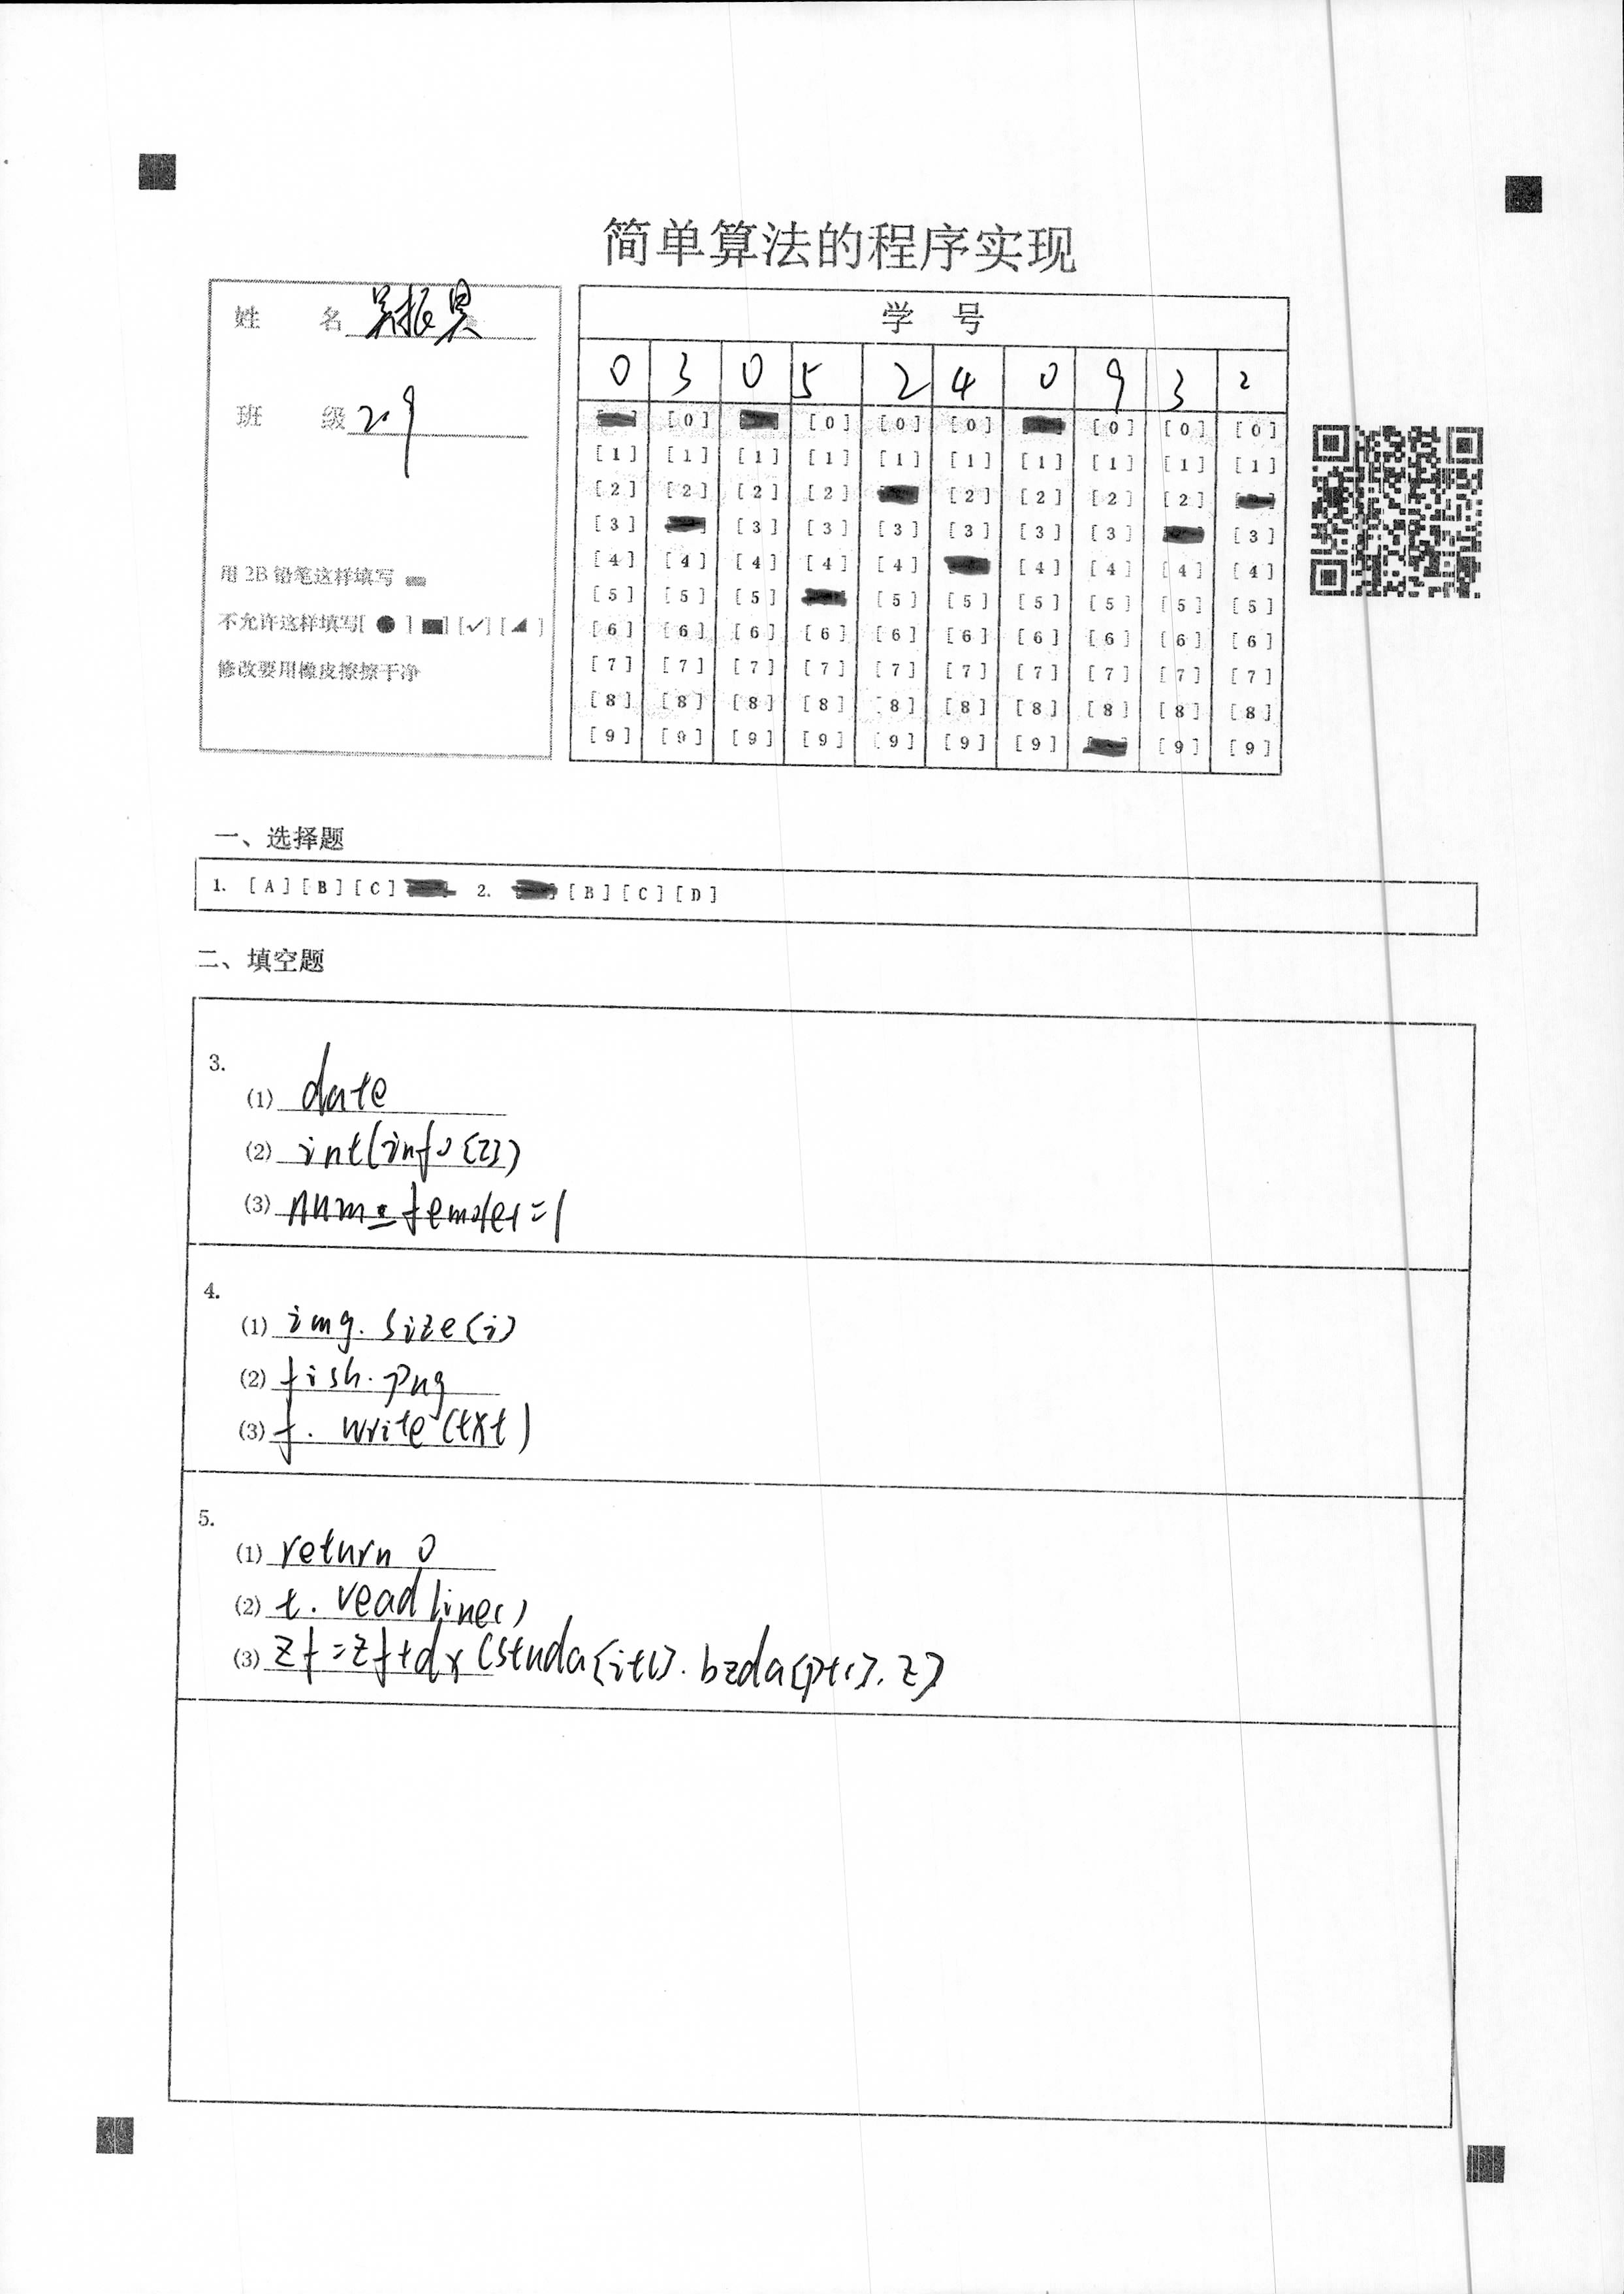 简单算法的程序实现
姓 名 吴振昊
班 级 209
用 2B 铅笔这样填写
不允许这样填写[ ● ] [■] [✓] [◢ ]
修改要用橡皮擦擦干净
学 号
0 3 0 5 2 4 0 9 3 2
[0] [0] [0] [0] [0] [0] [0]
[1] [1] [1] [1] [1] [1] [1] [1] [1] [1]
[2] [2] [2] [2] [2] [2] [2] [2]
[3] [3] [3] [3] [3] [3] [3] [3]
[4] [4] [4] [4] [4] [4] [4] [4] [4]
[5] [5] [5] [5] [5] [5] [5] [5] [5]
[6] [6] [6] [6] [6] [6] [6] [6] [6] [6]
[7] [7] [7] [7] [7] [7] [7] [7] [7] [7]
[8] [8] [8] [8] [8] [8] [8] [8] [8] [8]
[9] [9] [9] [9] [9] [9] [9] [9] [9]
一、选择题
1. [A] [B] [C] 2. [B] [C] [D]
二、填空题
3.
(1) date
(2) int(info[2])
(3) num_females=1
4.
(1) img.size[i]
(2) fish.png
(3) f.write(txt)
5.
(1) return 0
(2) t.readline()
(3) zf=zf+dx(studa[i+1].bzda[p+1].z)